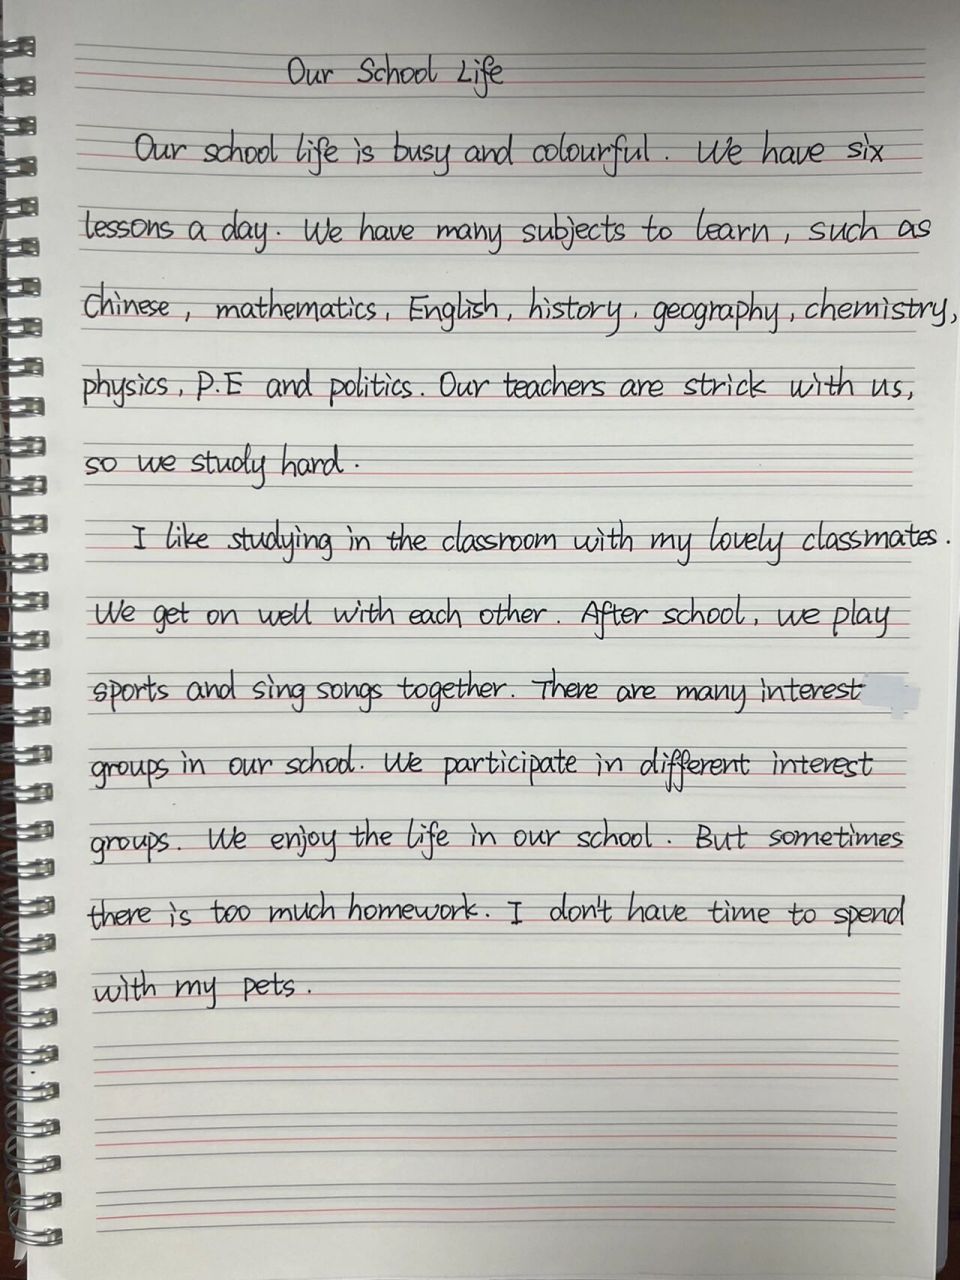 Our School Life
Our school life is busy and colourful. We have six
lessons a day. We have many subjects to learn, such as
Chinese, mathematics, English, history, geography, chemistry,
physics, P.E and politics. Our teachers are strick with us,
so we study hard.
I like studying in the classroom with my lovely classmates.
We get on well with each other. After school, we play
sports and sing songs together. There are many interest
groups in our school. We participate in different interest
groups. We enjoy the life in our school. But sometimes
there is too much homework. I don't have time to spend
with my pets.